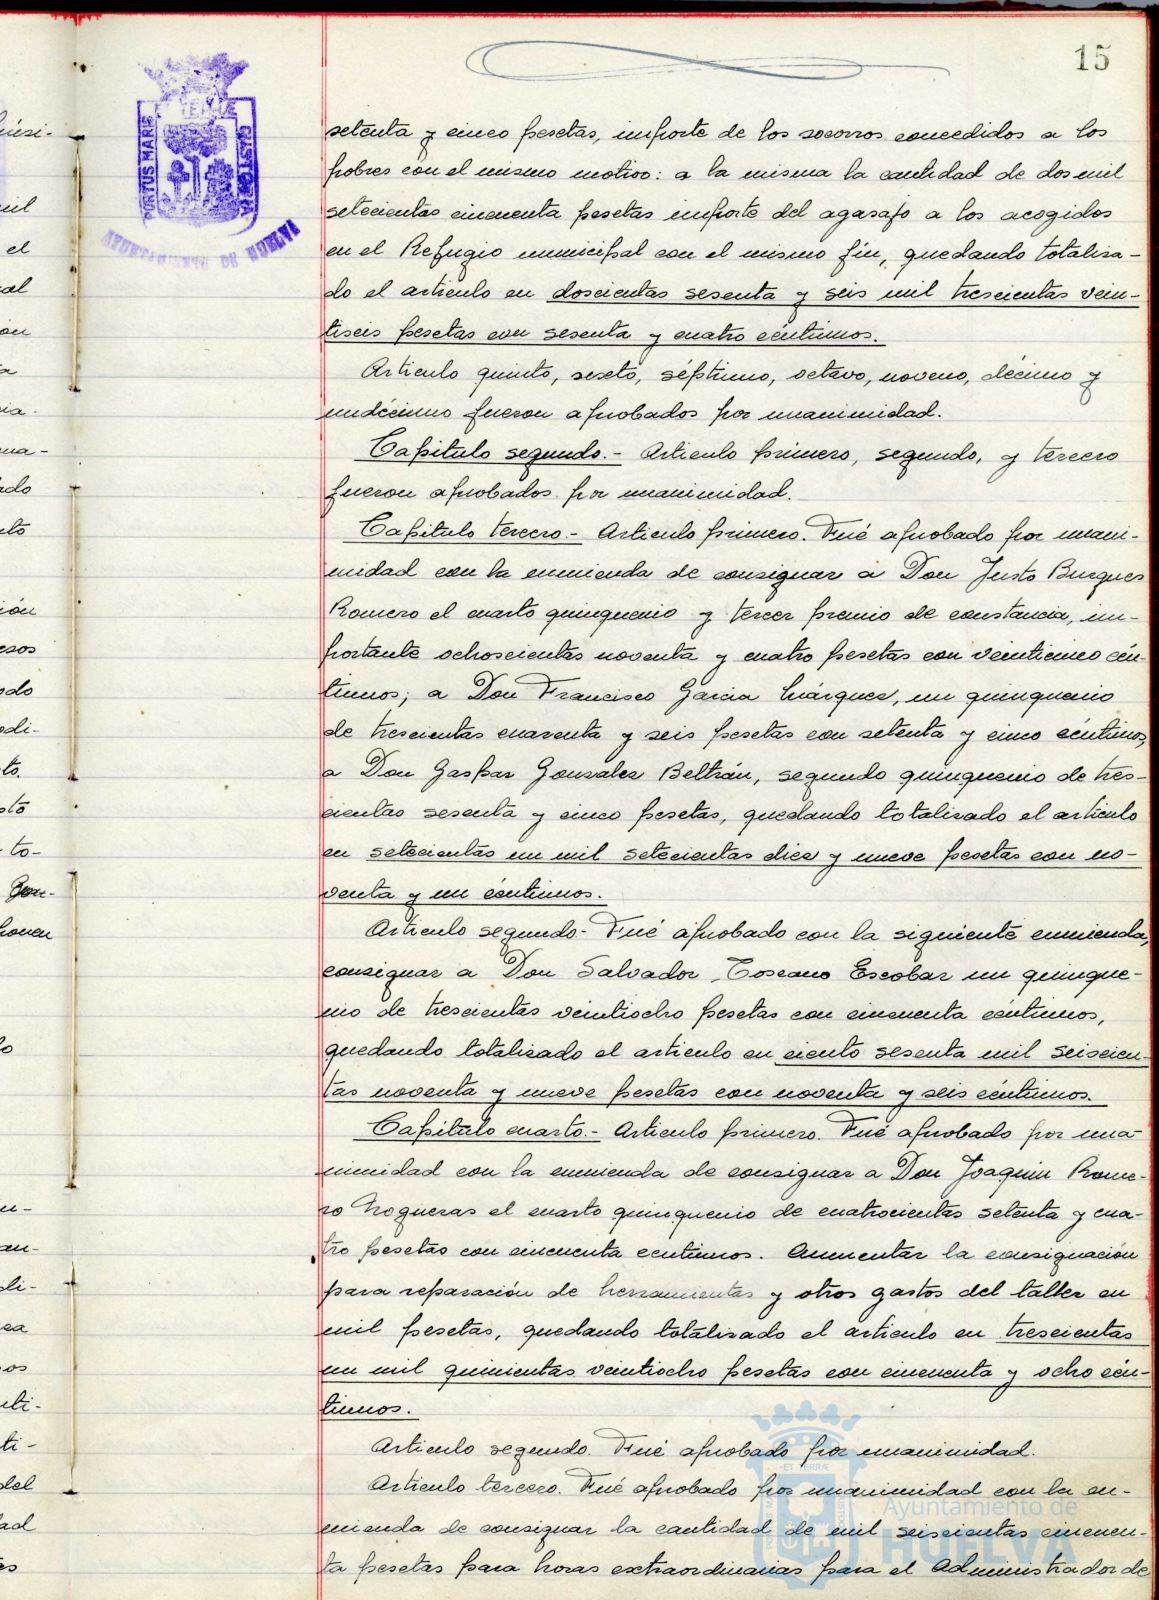 15
PORTUS MARIS
ET TERRÆ
AYUNTAMIENTO DE HUELVA
setenta y cinco pesetas, importe de los socorros concedidos a los
pobres con el mismo motivo: a la misma la cantidad de dos mil
setecientas cincuenta pesetas importe del agasajo a los acogidos
en el Refugio municipal con el mismo fín, quedando totaliza-
do el articulo en doscientas sesenta y seis mil trescientas vein-
tiseis pesetas con sesenta y cuatro céntimos.
Articulo quinto, sexto, séptimo, octavo, noveno, décimo y
undécimo fueron aprobados por unanimidad.
Capitulo segundo.- Articulo primero, segundo, y tercero
fueron aprobados por unanimidad.
Capitulo tercero.- Articulo primero. Fué aprobado por unani-
midad con la enmienda de consignar a Don Justo Burgues
Romero el cuarto quinquenio y tercer premio de constancia, im-
portante ochoscientas noventa y cuatro pesetas con veinticinco cén-
timos; a Don Francisco Garcia Márquez, un quinquenio
de trescientas cuarenta y seis pesetas con setenta y cinco céntimos,
a Don Gaspar Gonzalez Beltrán, segundo quinquenio de tres-
cientas sesenta y cinco pesetas, quedando totalizado el articulo
en setecientas un mil setecientas diez y nueve pesetas con no-
venta y un céntimos.
Articulo segundo.- Fué aprobado con la siguiente enmienda,
consignar a Don Salvador Toscano Escobar un quinque-
nio de trescientas veintiocho pesetas con cincuenta céntimos,
quedando totalizado el articulo en ciento sesenta mil seiscien-
tas noventa y nueve pesetas con noventa y seis céntimos.
Capitulo cuarto.- Articulo primero. Fué aprobado por una-
nimidad con la enmienda de consignar a Don Joaquin Rome-
ro Nogueras el cuarto quinquenio de cuatrocientas setenta y cua-
tro pesetas con cincuenta centimos. Aumentar la consignación
para reparación de herramientas y otros gastos del taller en
mil pesetas, quedando totalizado el articulo en trescientas
un mil quinientas veintiocho pesetas con cincuenta y ocho cén-
timos.
Articulo segundo. Fué aprobado por unanimidad.
Articulo tercero. Fué aprobado por unanimidad con la en-
mienda de consignar la cantidad de mil seiscientas cincuen-
ta pesetas para horas extraordinarias para el Administrador de
Ayuntamiento de
HUELVA